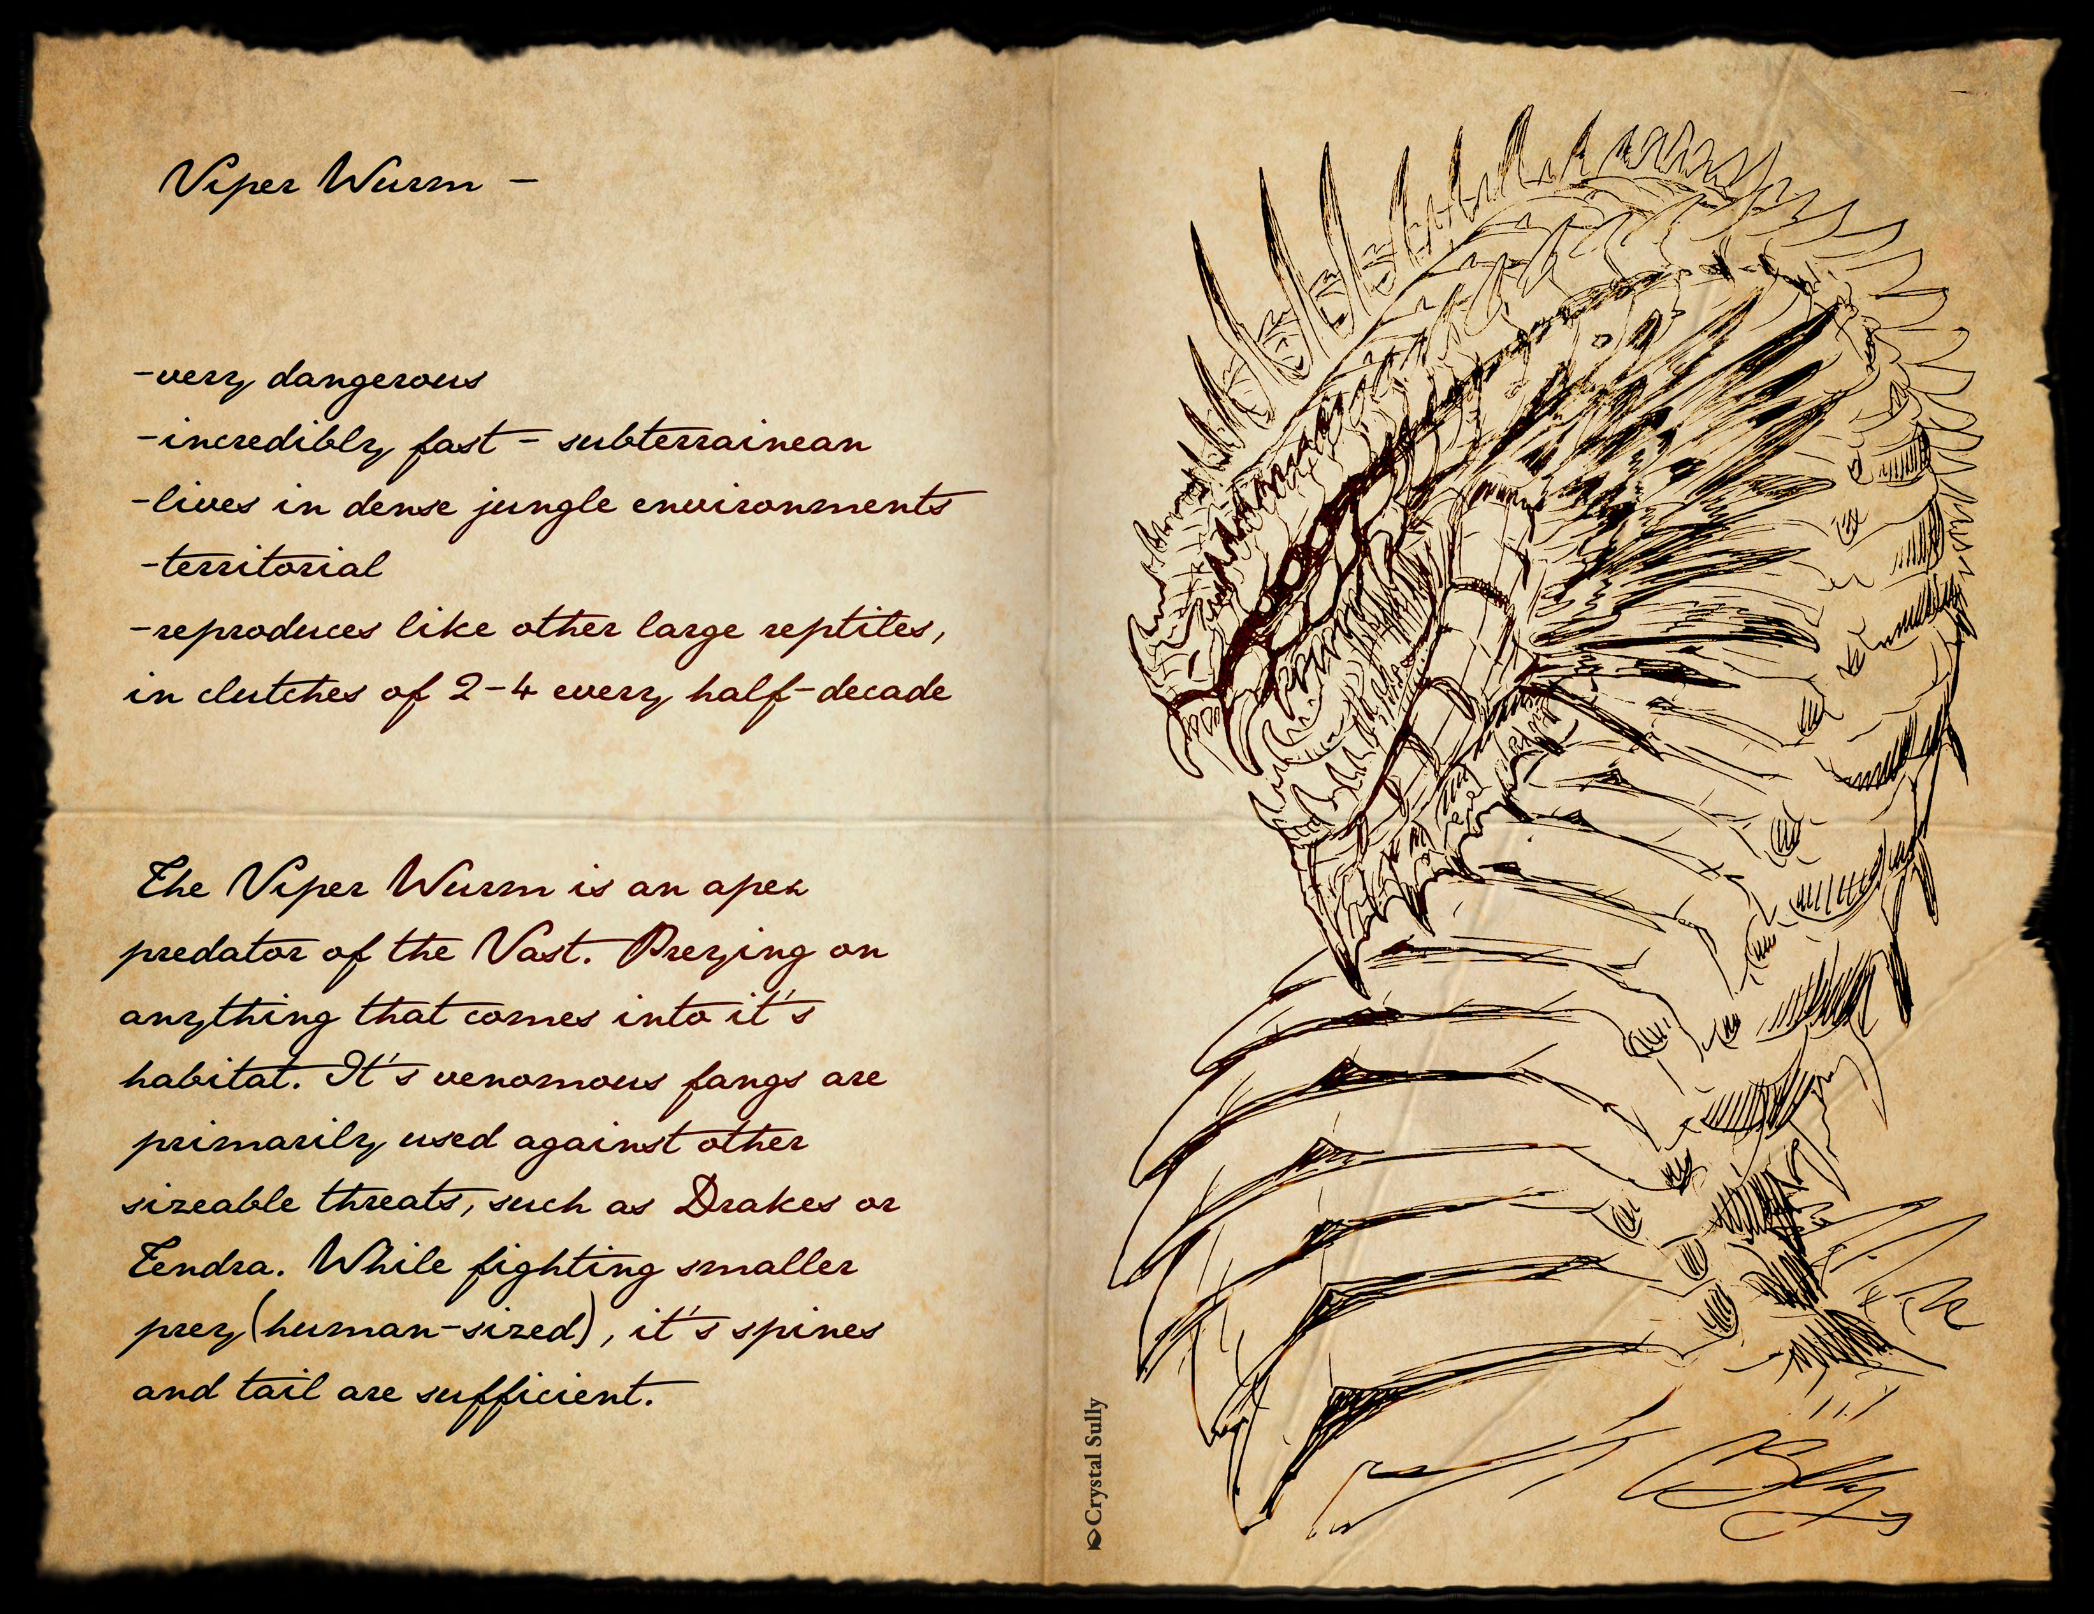 Viper Wurm -
-very dangerous
-incredibly fast - subterrainean
-lives in dense jungle environments
-territorial
-reproduces like other large reptiles,
in clutches of 2-4 every half-decade
The Viper Wurm is an apex
predator of the Vast. Preying on
anything that comes into it's
habitat. It's venomous fangs are
primarily used against other
sizeable threats, such as Drakes or
Tendra. While fighting smaller
prey(human-sized), it's spines
and tail are sufficient.
Crystal Sully